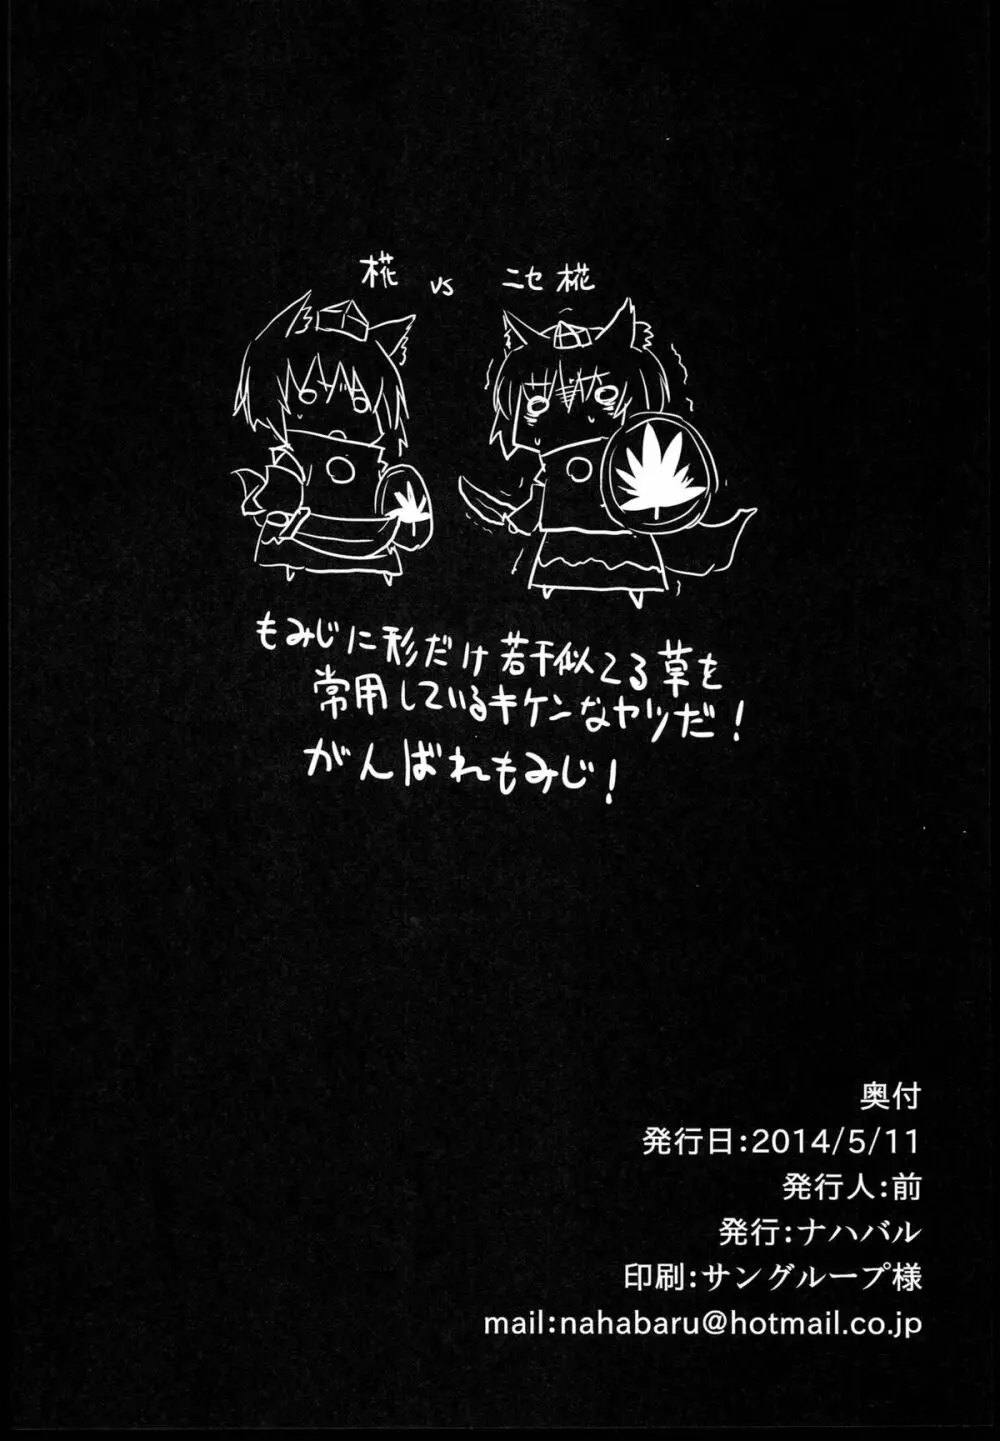 椛 vs ニセ椛
もみじに形だけ若干似てる草を
常用しているキケンなヤツだ!
がんばれもみじ!
奥付
発行日:2014/5/11
発行人:前
発行:ナハバル
印刷:サングループ様
mail:nahabaru@hotmail.co.jp